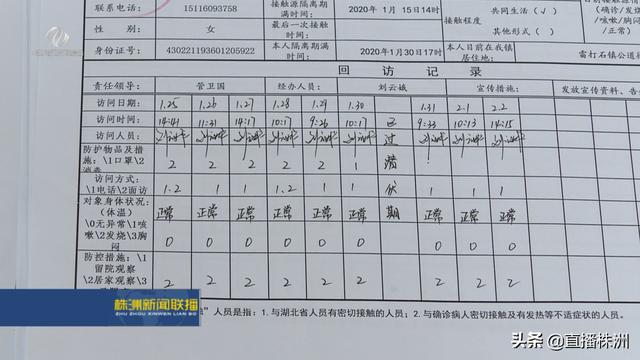 联系电话: 15116093758 接触源隔离期满时间: 2020年 1月 15日14时 接触程度 共同生活（√）
其他形式（ ） (确诊/发烧/咳嗽/胸闷/正常)
性 别: 女 最后一次接触时间
身份证号: 本人隔离期满时间: 2020年1月30日17时 本人目前在我镇居住地: 雷打石镇公道
回 访 记 录
责任领导: 管卫国 经办人员: 刘云斌 宣传措施: 发放宣传资料、告
访问日期: 1.25 1.26 1.27 1.28 1.29 1.30 1.31 2.1 2.2
访问时间: 14:41 11:31 14:17 10:17 9:26 10:17 已 9:33 10:13 14:15
访问人员: 过
防护物品及措施:\1口罩\2消毒 2 2 2 2 2 1 潜
访问方式:\1电话\2面访 1.2 1 1 1.2 1 1 伏 1 1 1
对象身体状况:(体温) 正常 正常 正常 正常 正常 正常 期 正常 正常 正常
\0无异常\1咳嗽\2发烧\3胸闷 0 0 0 0 0 0 0 0 0
防控措施:\1留院观察\2居家观察\3 2 2 2 2 2 2 2 2 2
株洲新闻联播
ZHU ZHOU XINWEN LIAN BO
”人员是指: 1.与湖北省人员有密切接触的人员; 2.与确诊病人密切接触及有发热等不适症状的人员。
头条 @直播株洲